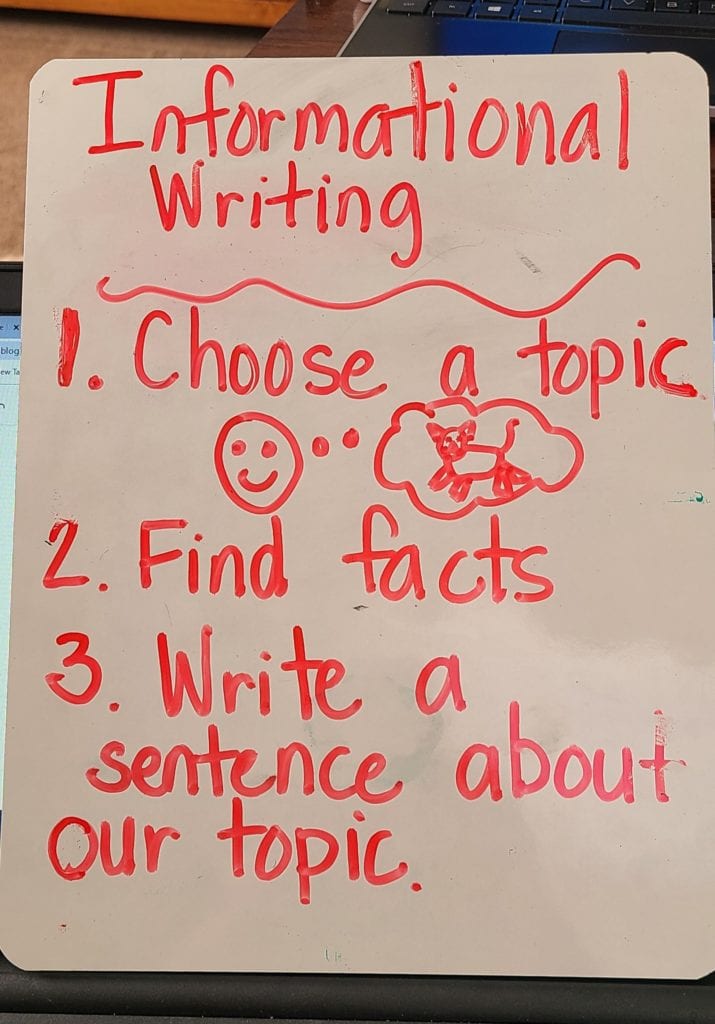 Informational
Writing
1. Choose a topic
2. Find facts
3. Write a
sentence about
our topic.
blog